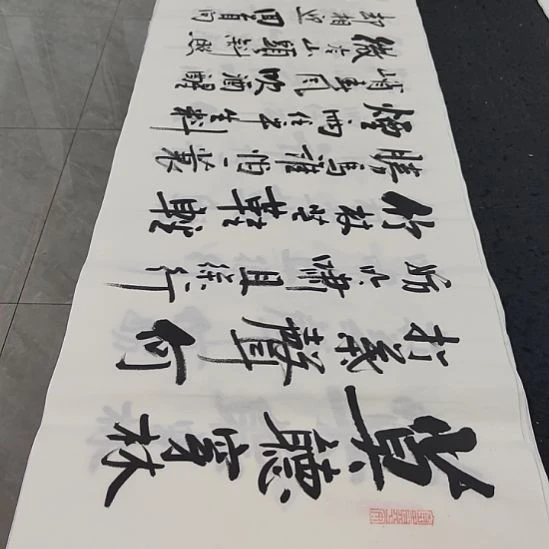 莫聽穿林
打葉聲何
妨吟嘯且徐行
竹杖芒鞋輕
勝馬誰怕一蓑
烟雨任平生料
峭春風吹酒醒
微冷山頭斜照
却相迎回首向